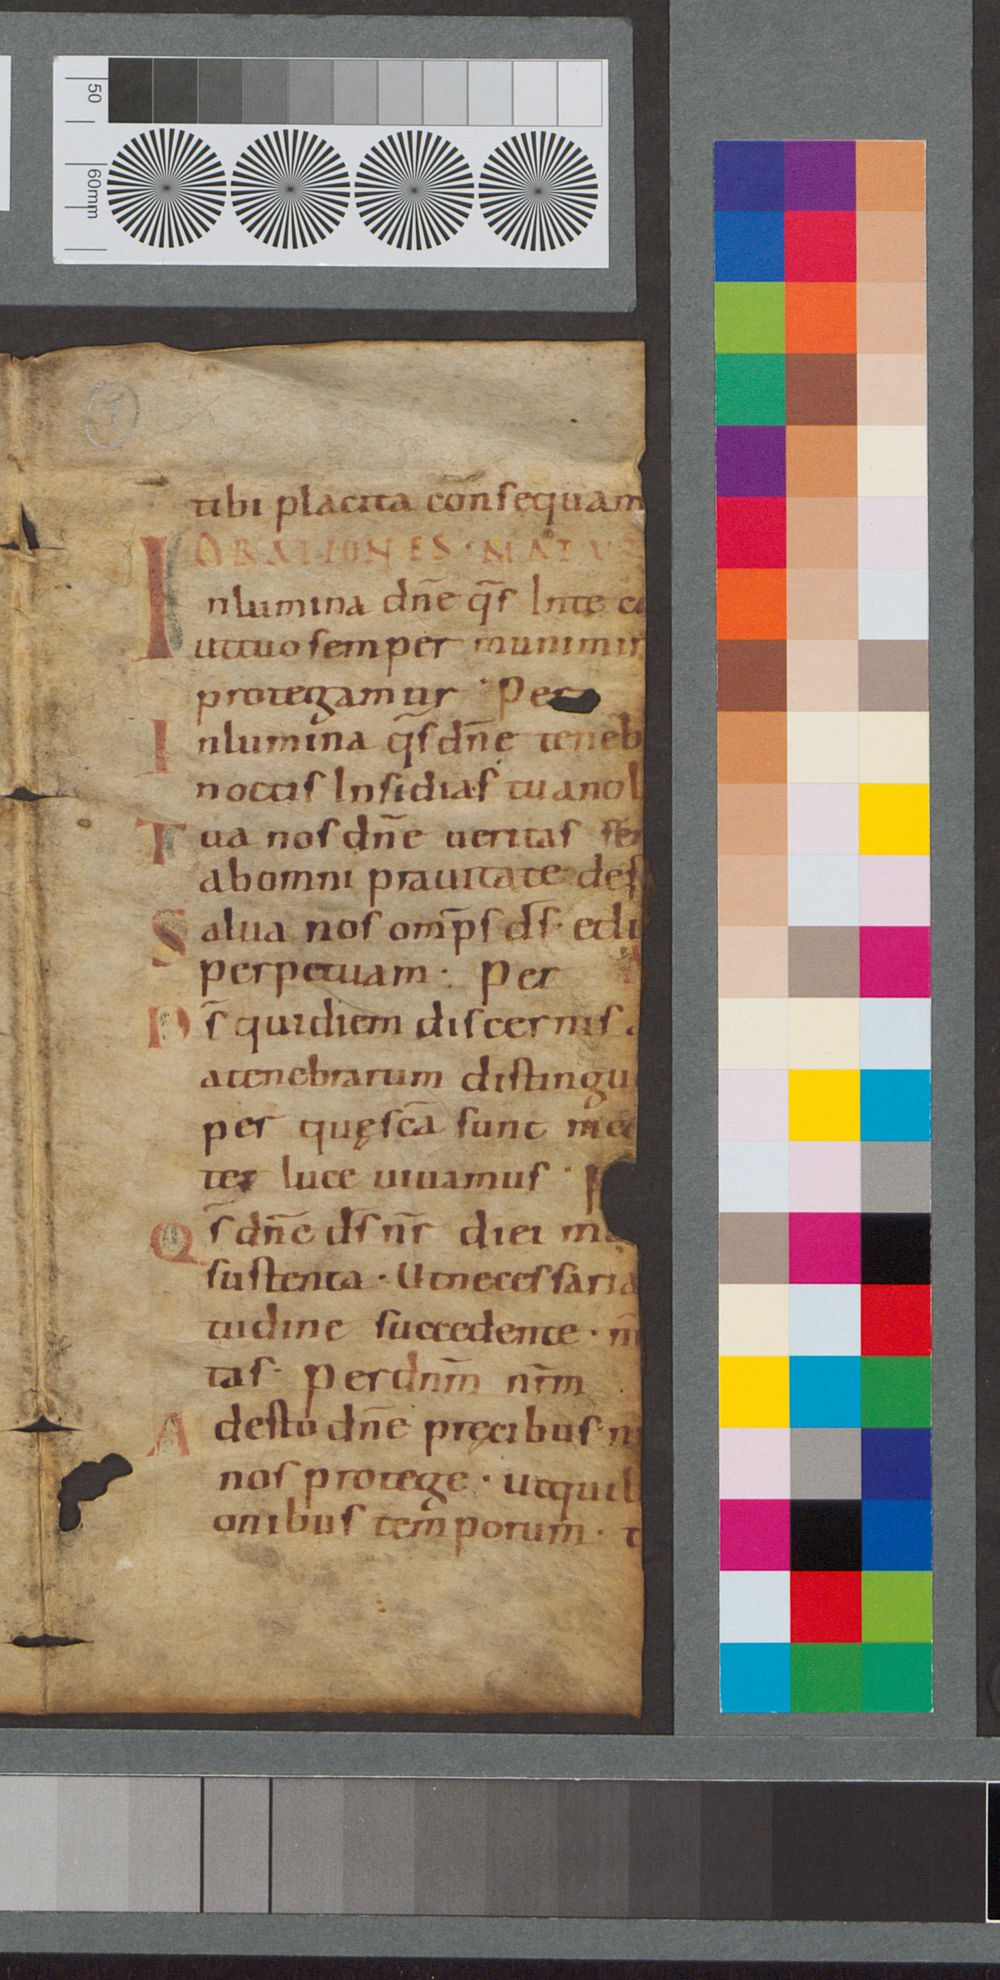 50
60mm
1
tibi placita con̄sequam
ORATIONES · MATV
Inlumina dn̄e q̄s Inte co
uttuo semper munimin
protegamur · Per
Inlumina q̄s dn̄e teneb
noctis Insidias tu a nob
Tua nos dn̄e ueritas sem
ab omni prauitate def
Salua nos om̄ps d̄s · et lu
perpetuam · Per
D̄s qui diem discernis a
a tenebrarum distingu
per quęsc̄a sunt med
ter luce uiuamus ·
Q̄s dn̄e d̄s nr̄ diei m
sustenta · Ut necessaria
tudine succedente · n
tas · Per dnm̄ nr̄m
Adesto dn̄e pręcibus n
nos protege · utqui
onibus temporum · t